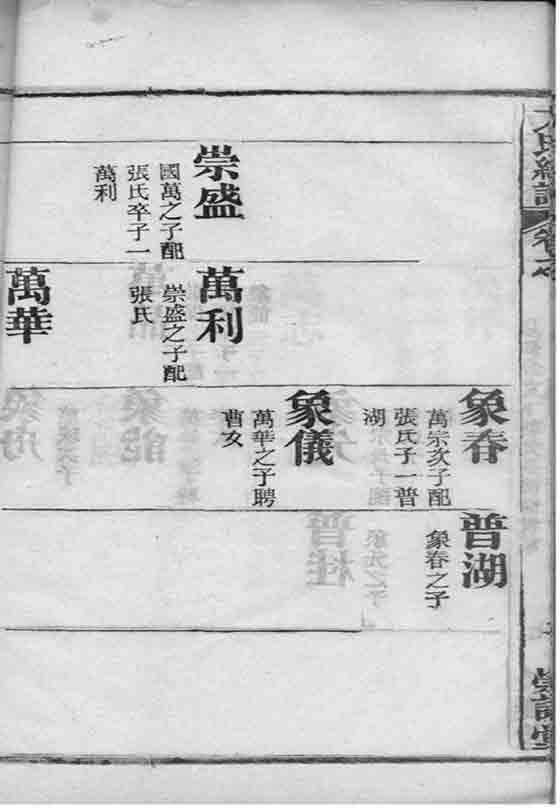 崇盛
國萬之子配
張氏卒子一
萬利
萬利
崇盛之子配
張氏
萬華
象春
萬宗次子配
張氏子一普
湖
象儀
萬華之子聘
曹女
普湖
象春之子